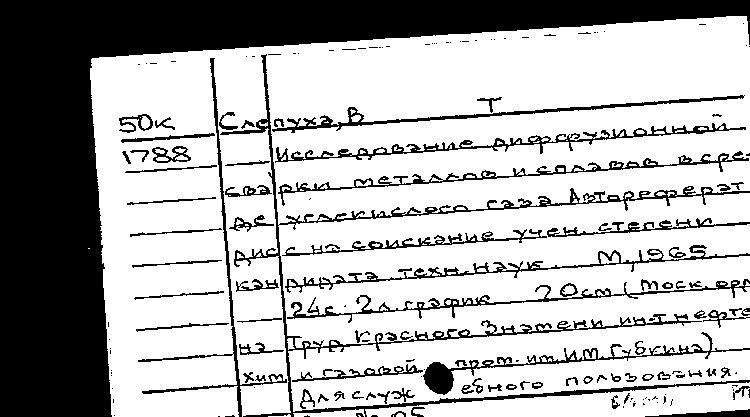 50к Слепуха, В Т
1788 Исследование диффузионной
сварки металлов и сплавов в сре-
де углекислого газа Автореферат
дис с на соискание учен. степени
кандидата техн. наук М, 1965.
24с; 2л. график 20см (Моск. орд
на Труд. Красного Знамени ин-т нефте
хим и газовой пром. им. И.М. Губкина).
Для служебного пользования.